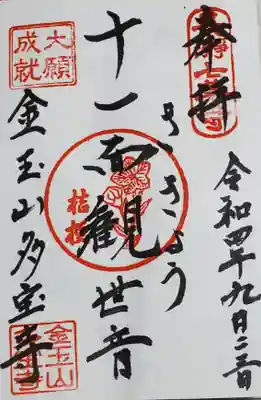 奉拝
令和四年九月
ききょう
十一面観世音
桔梗
大願
成就
金玉山多宝寺
金玉山